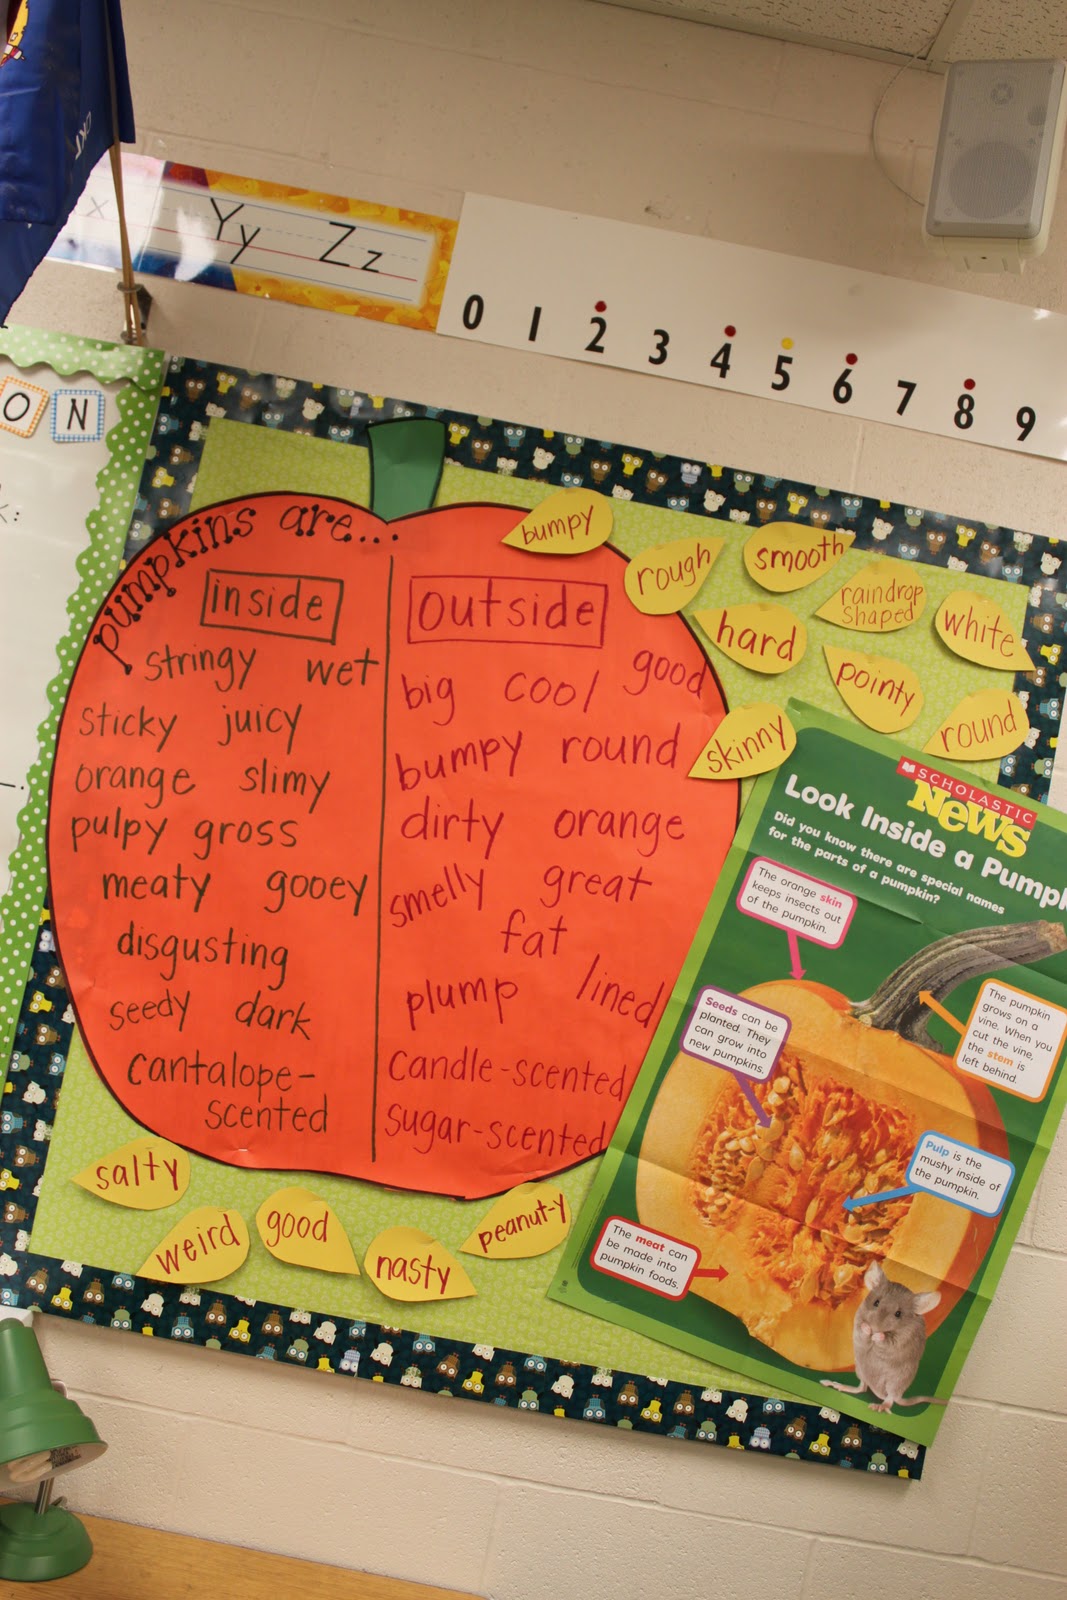 x
Yy Zz
0 1 2 3 4 5 6 7 8 9
O N
pumpkins are...
inside
stringy wet
sticky juicy
orange slimy
pulpy gross
meaty gooey
disgusting
seedy dark
cantalope-
scented
outside
good
big cool
bumpy round
dirty orange
smelly great
fat
plump lined
candle-scented
sugar-scented
bumpy
rough
smooth
raindrop
shaped
white
hard
pointy
round
skinny
salty
weird
good
nasty
peanut-y
SCHOLASTIC
News
Look Inside a Pumpk
Did you know there are special names
for the parts of a pumpkin?
The orange skin
keeps insects out
of the pumpkin.
Seeds can be
planted. They
can grow into
new pumpkins.
The pumpkin
grows on a
vine. When you
cut the vine,
the stem is
left behind.
Pulp is the
mushy inside of
the pumpkin.
The meat can
be made into
pumpkin foods.